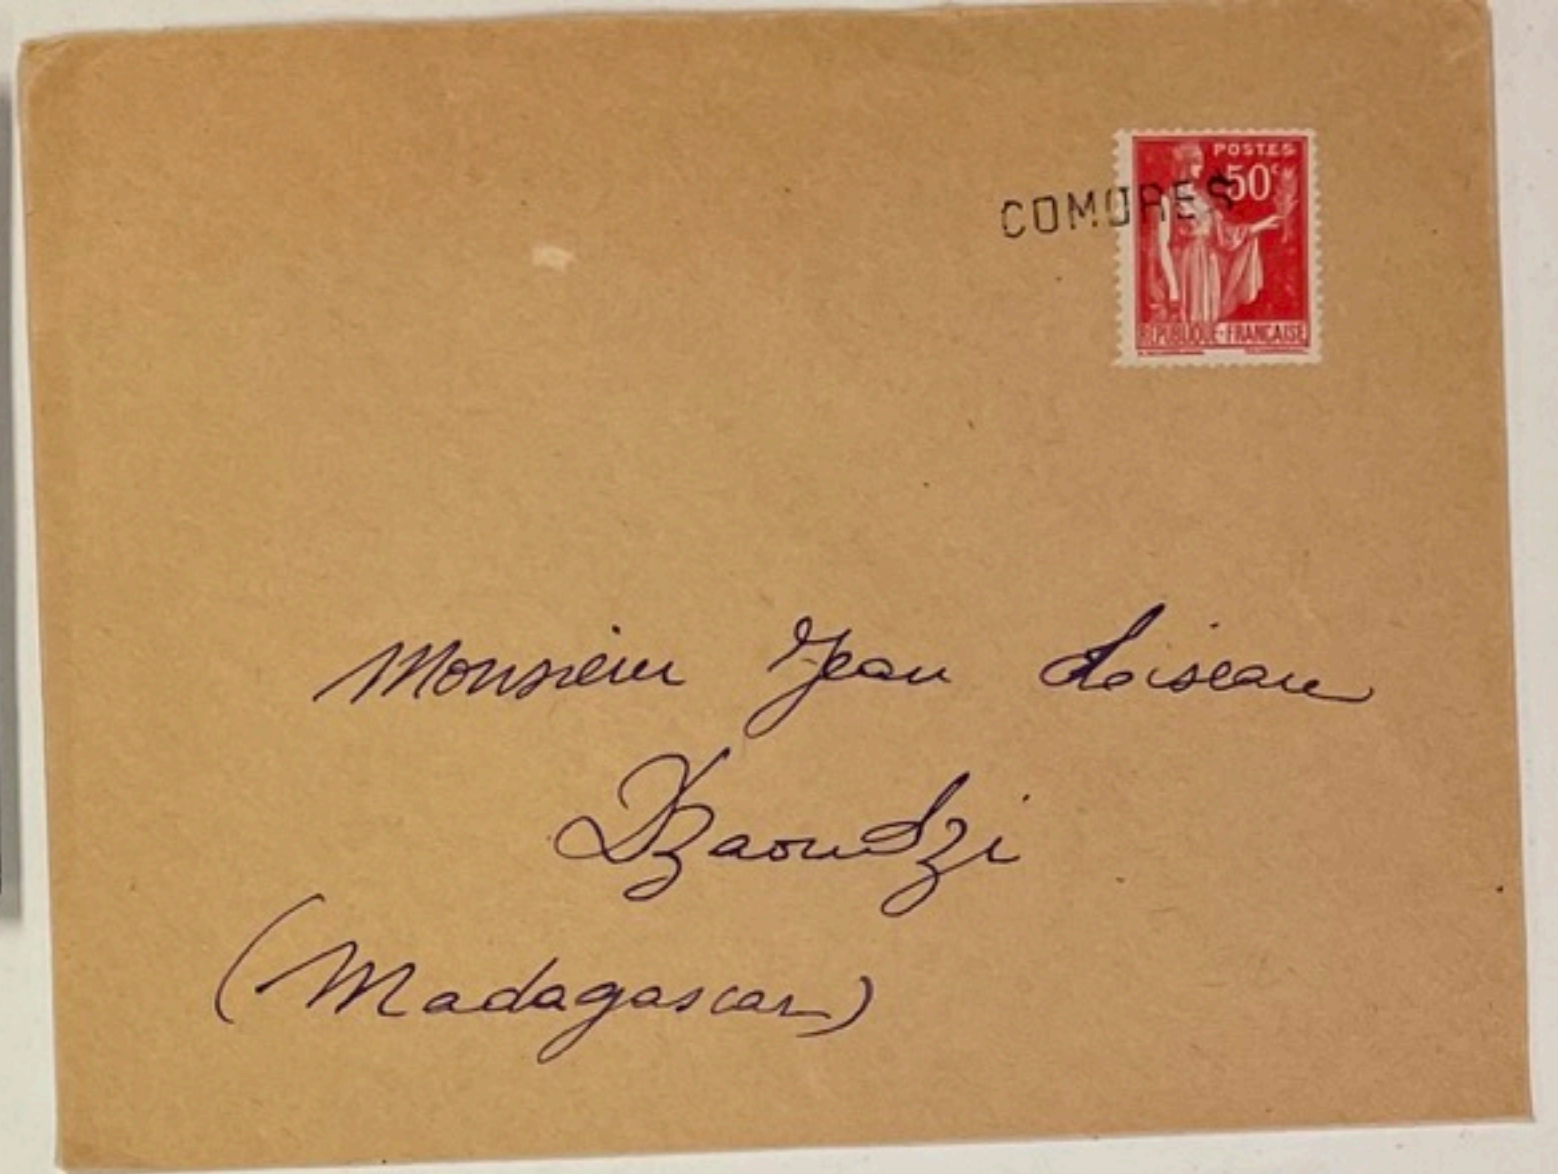 POSTES
50c
COMORES
REPUBLIQUE-FRANÇAISE
Monsieur Jean Loiseau
Dzaoudzi
(Madagascar)